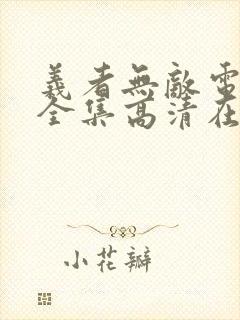 義者無敵電
全集高清在
小花瓣